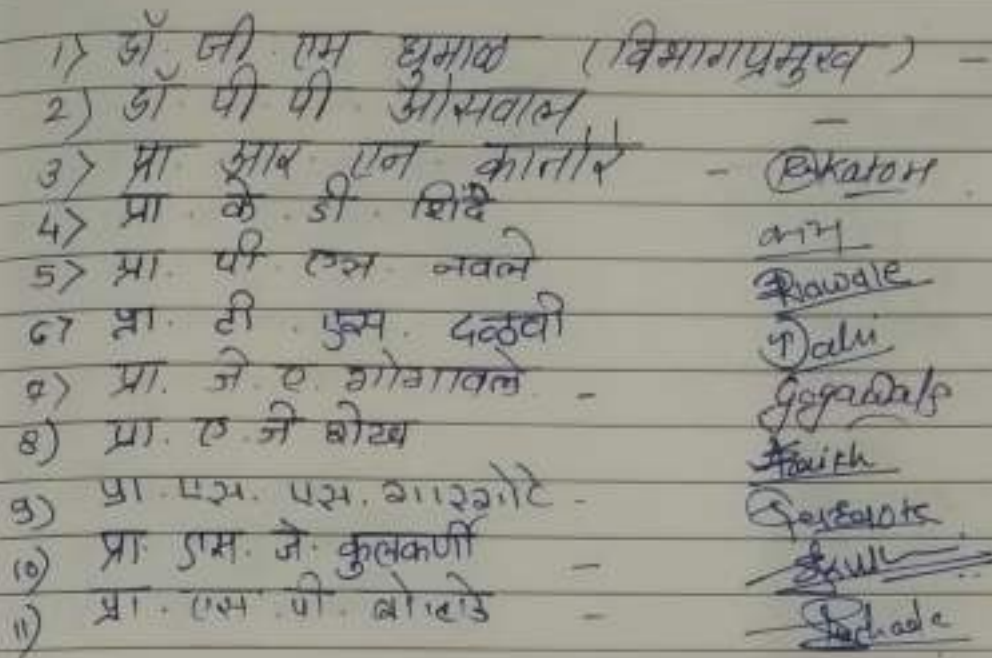 1) डॉ. जी. एम धुमाळ (विभागप्रमुख) -
2) डॉ. पी पी ओसवाल -
3) प्रा आर. एन. कातोरे - Rkatore
4) प्रा. के. डी. शिंदे
5) प्रा. पी एस. नवले Nawale
6) प्रा. टी. एस. दळवी Dalvi
7) प्रा. जे. ए. गोगावले - Gogawale
8) प्रा. ए. जे शेख Shaikh
9) प्रा. एस. एस. गारगोटे -
10) प्रा. एम. जे. कुलकर्णी -
11) प्रा. एस. पी. -